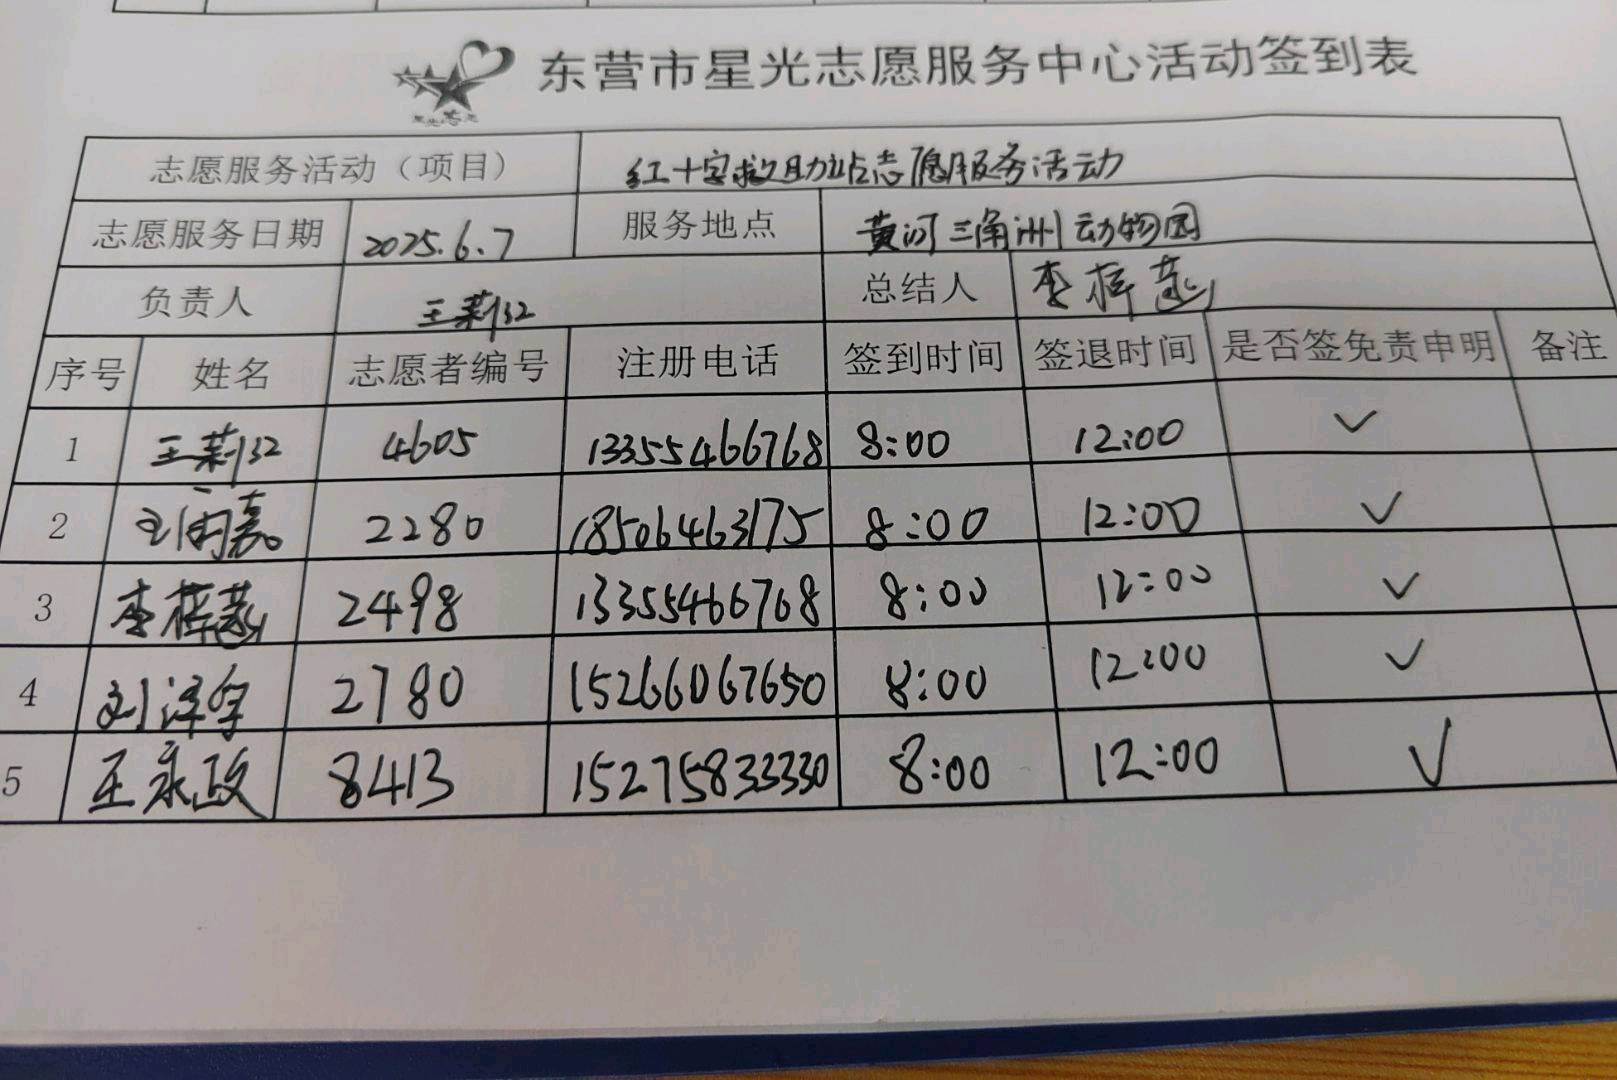 东营市星光志愿服务中心活动签到表
志愿服务活动（项目） 红十字救助站志愿服务活动
志愿服务日期 2025.6.7 服务地点 黄河三角洲动物园
负责人 王莉娜 总结人 李梓菡
序号 姓名 志愿者编号 注册电话 签到时间 签退时间 是否签免责申明 备注
1 王莉娜 4605 13355466768 8:00 12:00 ✓
2 王雨嘉 2280 18506463175 8:00 12:00 ✓
3 李梓菡 2498 13355466768 8:00 12:00 ✓
4 刘泽宇 2780 15266067650 8:00 12:00 ✓
5 王永政 8413 15275833330 8:00 12:00 ✓